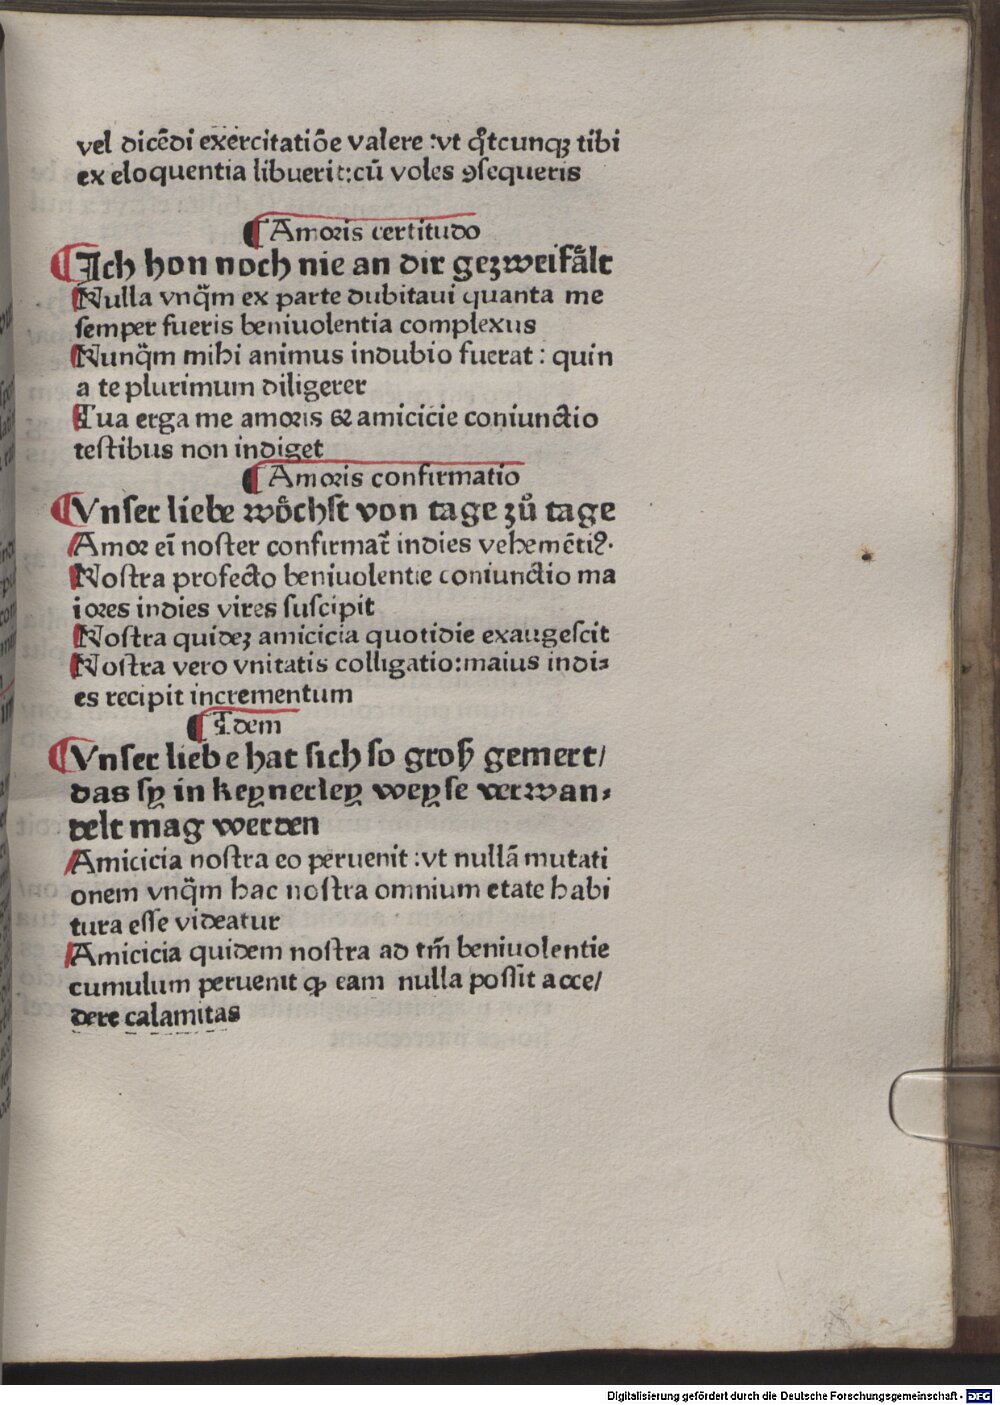 vel dicēdi exercitatiōe valere :vt qͦtcunqꝫ tibi
ex eloquentia libuerit:cū voles ꝯsequeris
¶ Amoris certitudo
¶ Ich hon noch nie an dir gezweifålt
Nulla vnq̄m ex parte dubitaui quanta me
semper fueris beniuolentia complexus
Nunq̄m mihi animus indubio fuerat : quin
a te plurimum diligerer
Tua erga me amoris & amicicie coniunctio
testibus non indiget
¶ Amoris confirmatio
¶ Vnser liebe wöchst von tage zů tage
Amor ei̅ noster confirmat᷑ indies vehemētiꝰ.
Nostra profecto beniuolentie coniunctio ma
iores indies vires suscipit
Nostra quideꝫ amicicia quotidie exaugescit
Nostra vero vnitatis colligatio:maius indi⸗
es recipit incrementum
¶ Idem
¶ Vnser liebe hat sich so groß gemert/
das sy in keynerley weyse verwan⸗
delt mag werden
Amicicia nostra eo peruenit :vt nullā mutati
onem vnq̄m hac nostra omnium etate habi
tura esse videatur
Amicicia quidem nostra ad tm̄ beniuolentie
cumulum peruenit ꝙ eam nulla possit acce/
dere calamitas
Digitalisierung gefördert durch die Deutsche Forschungsgemeinschaft - DFG